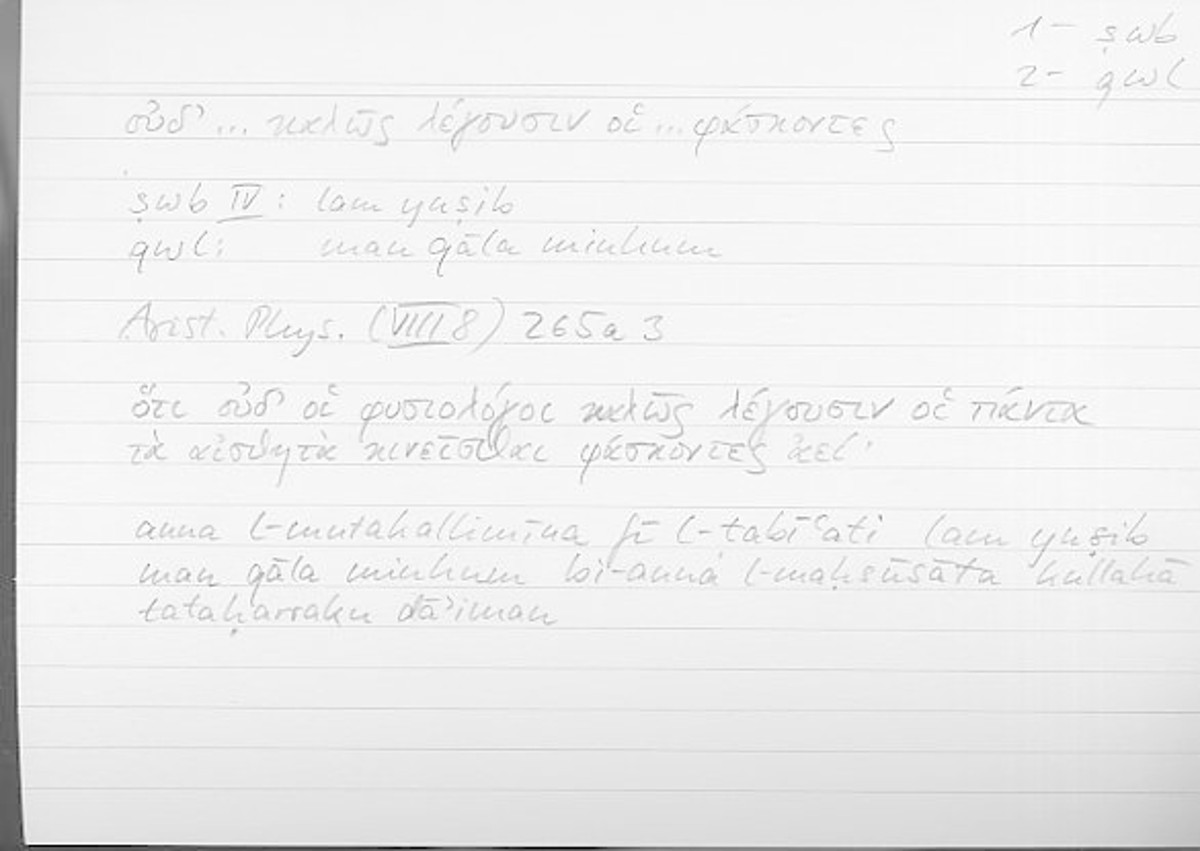 1- ṣwb
2- qwl
οὐδ' ... καλῶς λέγουσιν οἱ ... φάσκοντες
ṣwb IV: lam yuṣib
qwl: man qāla minhum
Arist. Phys. (VIII 8) 265a 3
ὅτι οὐδ' οἱ φυσιολόγοι καλῶς λέγουσιν οἱ πάντα
τὰ αἰσθητὰ κινεῖσθαι φάσκοντες ἀεί·
anna l-mutakallimīna fī l-ṭabīʿati lam yuṣib
man qāla minhum bi-anna l-maḥsūsāta kullahā
tataḥarraku dāʾiman